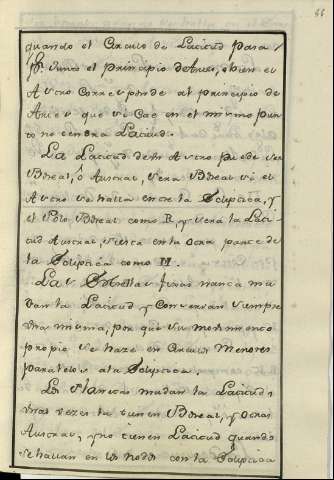 quando el Circulo de Latitud para
por Junto el principio de Aries, ô bien el
Astro corresponde al principio de
Aries que si cae en el mismo pun
to no tendra Latitud.
La Latitud de un Astro puede ser
Boreal, ô Austral, sera Boreal si el
Astro se halla entre la Ecliptica, y
el Polo Boreal como R, y sera la Lati-
tud Austral si esta en la otra parte de
la Ecliptica como M.
Las Estrellas fixas nunca mu
dan la Latitud y Conservan siempre
una misma, por que su movimiento
propio se haze en Circulos Menores
paralelos a la Ecliptica.
Los Planetas mudan la Latitud;
unas vezes la tienen Boreal, y Otras
Austral, y no tienen Latitud quando
se hallan en los Nodos con la Ecliptica